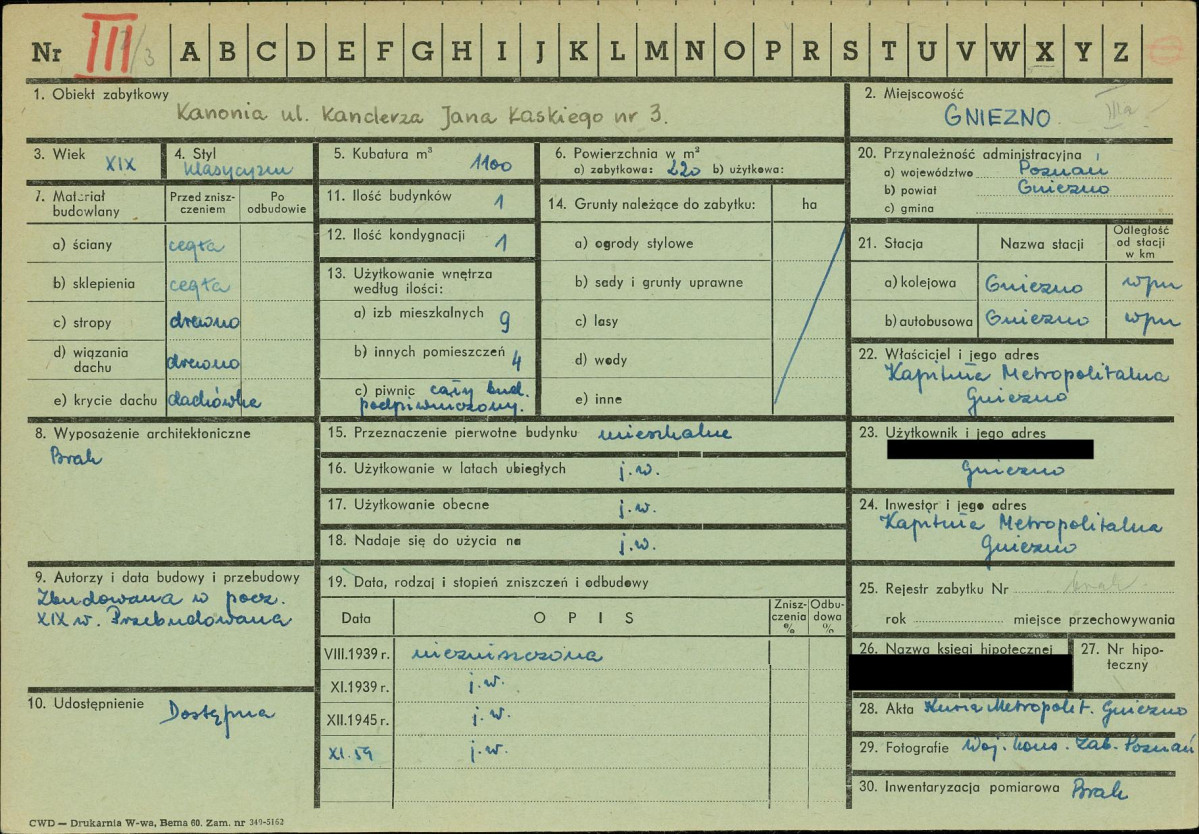 Nr III /3 A B C D E F G H I J K L M N O P R S T U V W X Y Z
1. Obiekt zabytkowy
Kanonia ul. Kanclerza Jana Łaskiego nr 3.
2. Miejscowość
GNIEZNO IIIa
3. Wiek XIX
4. Styl klasycyzm
5. Kubatura m³ 1100
6. Powierzchnia w m²
a) zabytkowa: 220 b) użytkowa:
20. Przynależność administracyjna
a) województwo Poznań
b) powiat Gniezno
c) gmina
7. Materiał budowlany
Przed zniszczeniem
Po odbudowie
a) ściany cegła
b) sklepienia cegła
c) stropy drewno
d) wiązania dachu drewno
e) krycie dachu dachówka
11. Ilość budynków 1
12. Ilość kondygnacji 1
13. Użytkowanie wnętrza
według ilości:
a) izb mieszkalnych 9
b) innych pomieszczeń 4
c) piwnic cały bud.
podpiwniczony.
14. Grunty należące do zabytku: ha
a) ogrody stylowe
b) sady i grunty uprawne
c) lasy
d) wody
e) inne
21. Stacja Nazwa stacji Odległość od stacji w km
a) kolejowa Gniezno wpm
b) autobusowa Gniezno wpm
22. Właściciel i jego adres
Kapituła Metropolitalna
Gniezno
8. Wyposażenie architektoniczne
Brak
15. Przeznaczenie pierwotne budynku mieszkalne
16. Użytkowanie w latach ubiegłych j.w.
17. Użytkowanie obecne j.w.
18. Nadaje się do użycia na j.w.
23. Użytkownik i jego adres
Gniezno
24. Inwestor i jego adres
Kapituła Metropolitalna
Gniezno
9. Autorzy i data budowy i przebudowy
Zbudowana w pocz.
XIX w. Przebudowana
10. Udostępnienie Dostępna
19. Data, rodzaj i stopień zniszczeń i odbudowy
Data OPIS Zniszczenia % Odbudowa %
VIII.1939 r. niezniszczona
XI.1939 r. j.w.
XII.1945 r. j.w.
XI.59 j.w.
25. Rejestr zabytku Nr brak
rok miejsce przechowywania
26. Nazwa księgi hipotecznej
27. Nr hipoteczny
28. Akta Kuria Metropolit. Gniezno
29. Fotografie Woj. kons. Zab. Poznań
30. Inwentaryzacja pomiarowa Brak
CWD — Drukarnia W-wa, Bema 60. Zam. nr 349-5162